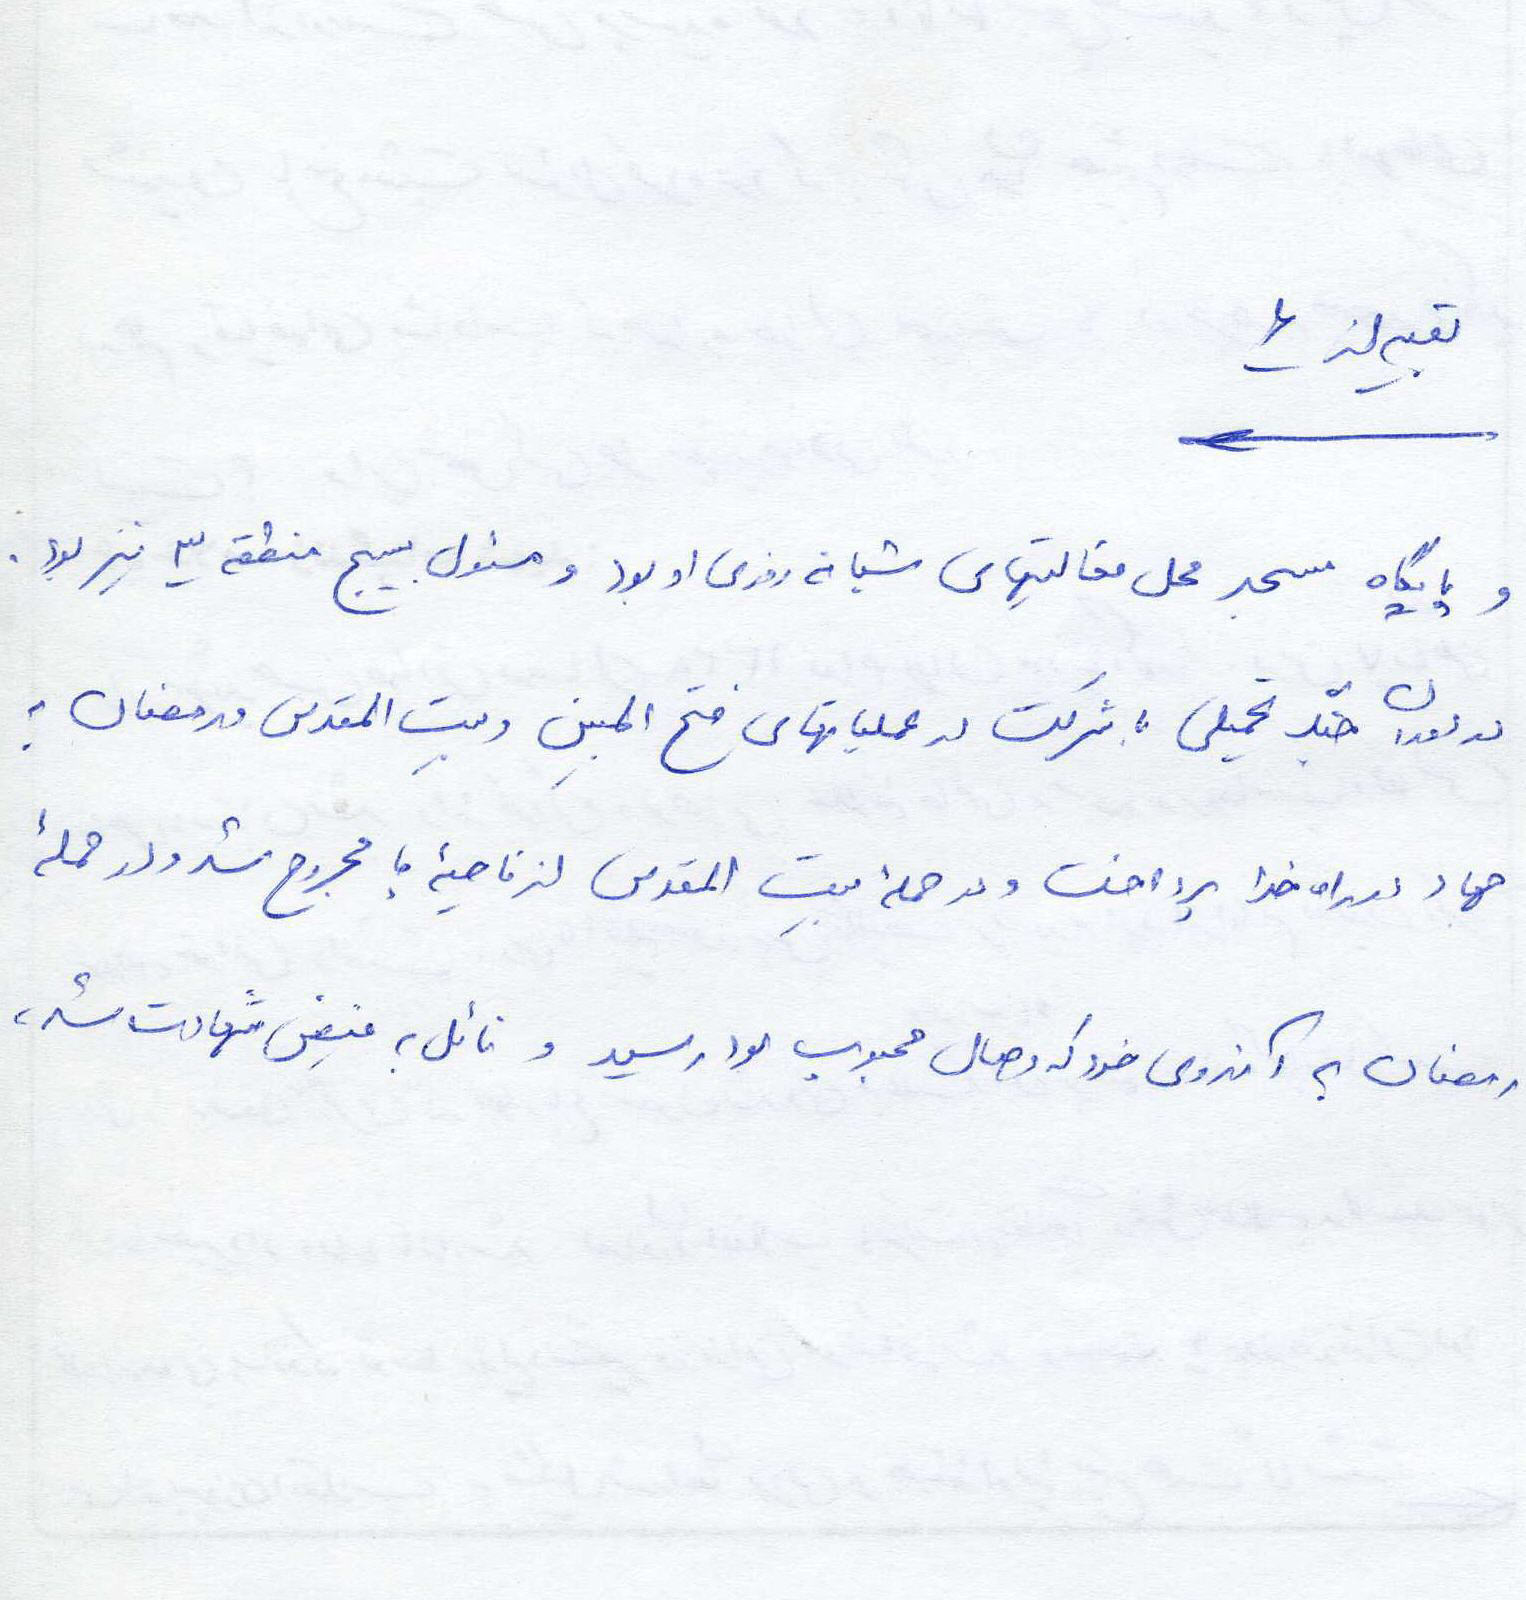 بقیه از ۶
و پایگاه مسجد محل فعالیتهای شبانه روزی او بود و مسئول بسیج منطقه ۳ نیز بود.
در دوران جنگ تحمیلی با شرکت در عملیاتهای فتح المبین و بیت المقدس و رمضان به
جهاد در راه خدا پرداخت و در حملهٔ بیت المقدس از ناحیهٔ پا مجروح شد و در حملهٔ
رمضان به آرزوی خود که وصال محبوب بود رسید و نائل به فیض شهادت شد،